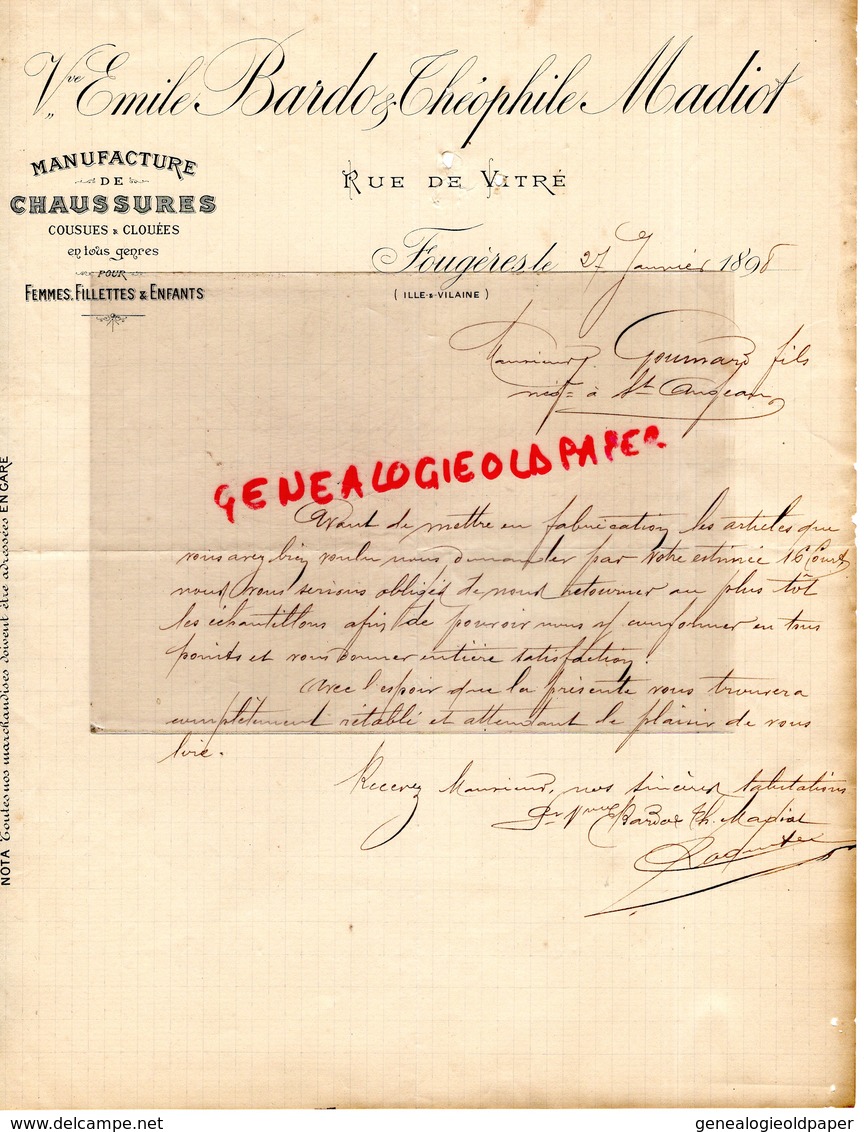 Vve Emile Bardo & Théophile Madiot
MANUFACTURE
DE
CHAUSSURES
COUSUES & CLOUÉES
en tous genres
POUR
FEMMES, FILLETTES & ENFANTS
RUE DE VITRÉ
Fougères, le 27 Janvier 1898
(ILLE-&-VILAINE)
Monsieur Goumard fils
négt à St Angeau
GENEALOGIEOLDPAPER
Avant de mettre en fabrication les articles que
vous avez bien voulu nous demander par votre estimée 16 Court
nous vous serions obligés de nous retourner au plus tôt
les échantillons afin de pouvoir nous y conformer en tous
points et vous donner entière satisfaction.
Avec l'espoir que la présente vous trouvera
complètement rétabli et attendant le plaisir de vous
lire.
Recevez Monsieur, nos sincères salutations
Pr Vve Bardo & Th. Madiot
NOTA Toutes nos marchandises doivent être adressées EN GARE
delcampe.net
genealogieoldpaper